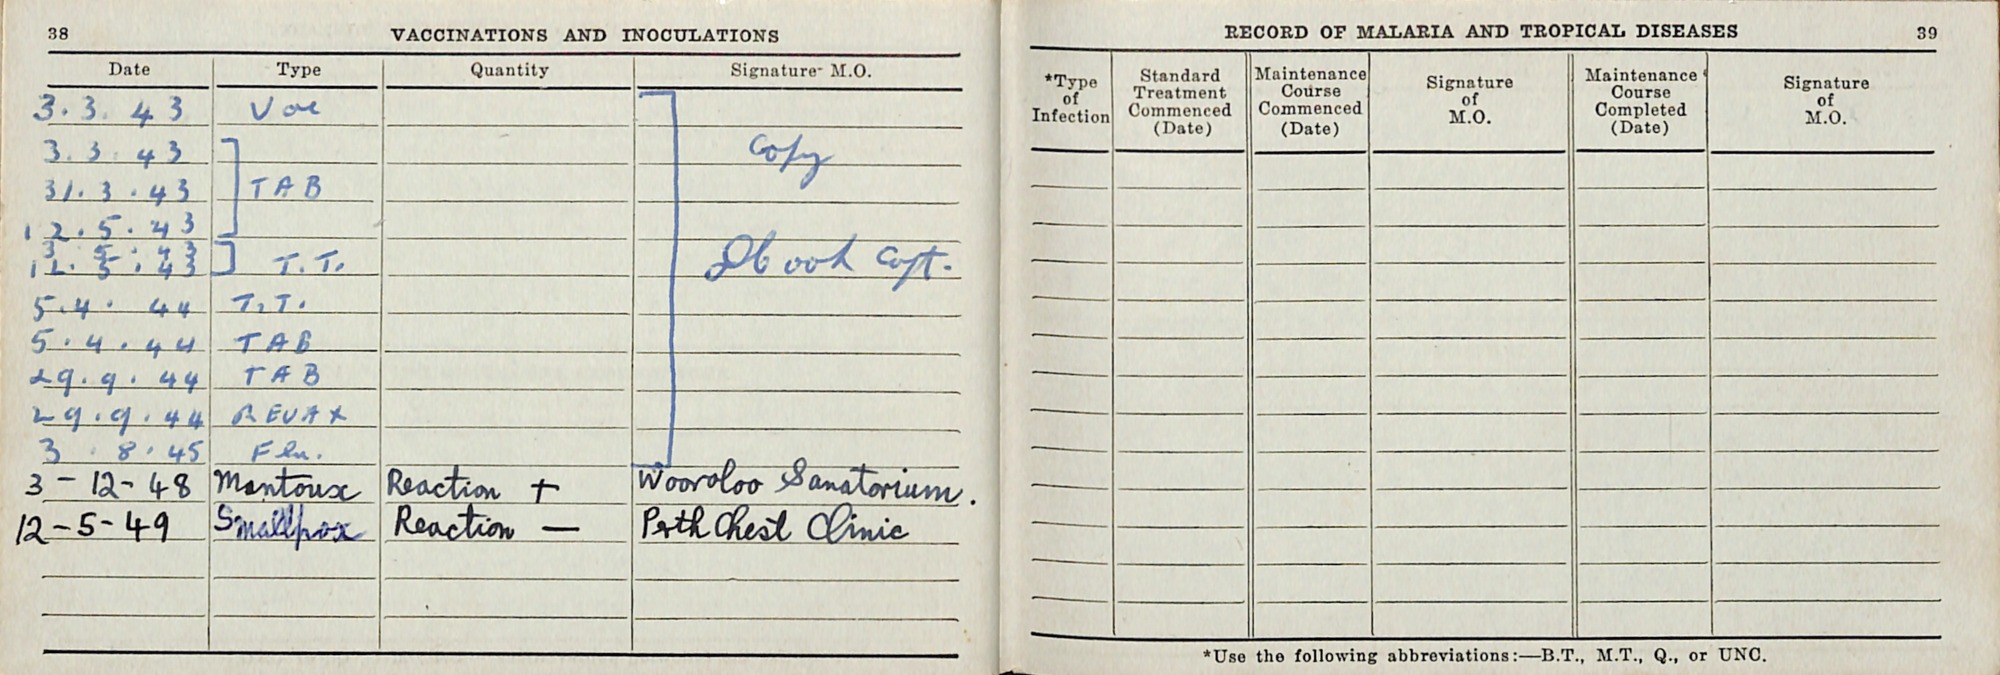 38 VACCINATIONS AND INOCULATIONS
Date Type Quantity Signature M.O.
3.3.43 Vac
3.3.43
31.3.43 TAB
12.5.43
3.5.43
12.5.43 T.T.
5.4.44 T.T.
5.4.44 TAB
29.9.44 TAB
29.9.44 REVAX
3.8.45 Flu.
Copy
Capt.
3-12-48 Mantoux Reaction + Wooroloo Sanatorium.
12-5-49 Smallpox Reaction — Perth Chest Clinic
RECORD OF MALARIA AND TROPICAL DISEASES 39
*Type of Infection
Standard Treatment Commenced (Date)
Maintenance Course Commenced (Date)
Signature of M.O.
Maintenance Course Completed (Date)
Signature of M.O.
*Use the following abbreviations:—B.T., M.T., Q., or UNC.